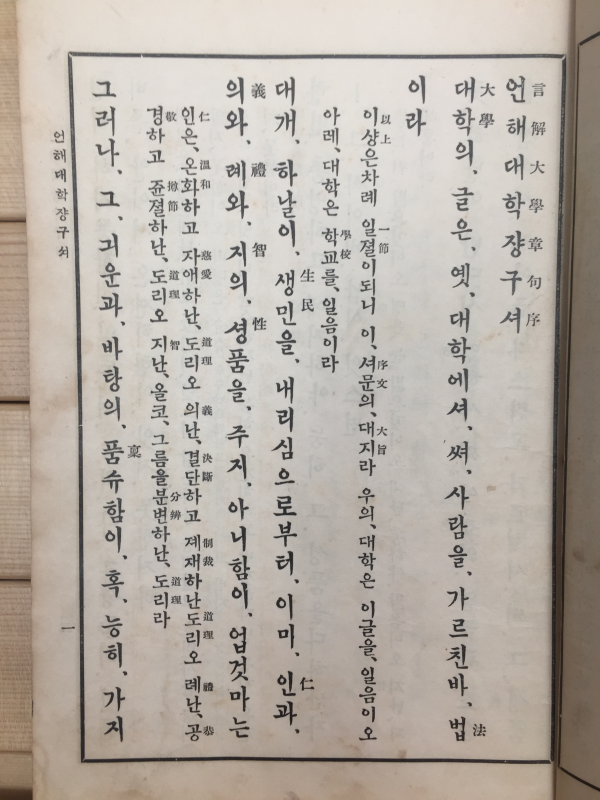 언해대학쟝구셔
言解大學章句序
대학의、글은、옛、대학에셔、쎠、사람을、가르친바、법
大學 法
이라
이샹은차례 일졀이되니 이、셔문의、대지라 우의、대학은 이글을、일음이오
以上 一節 序文 大旨
아레、대학은 학교를、일음이라
學校
대개、하날이、생민을、내리심으로부터、이미、인과、
生民 仁
의와、례와、지의、셩품을、주지、아니함이、업것마는
義 禮 智 性
인은、온화하고 자애하난、도리오 의난、결단하고 졔재하난도리오 례난、공
仁 溫和 慈愛 道理 義 決斷 制裁 道理 禮 恭
경하고 쥰졀하난、도리오 지난、올코、그름을분변하난、도리라
敬 撙節 道理 智 分辨 道理
그러나、그、긔운과、바탕의、품슈함이、혹、능히、가지
稟
언해대학쟝구셔
一